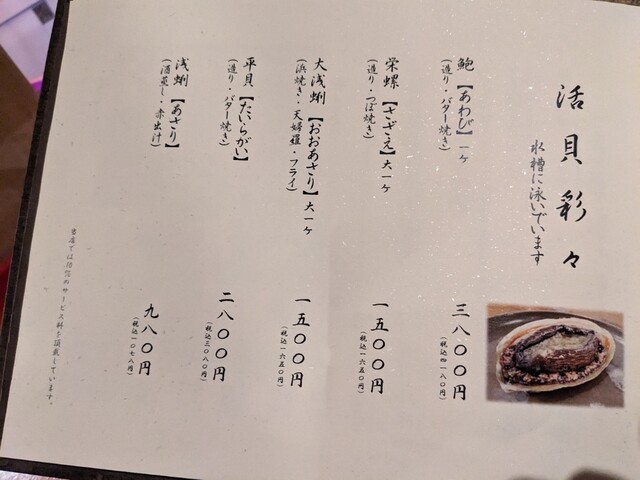 活貝彩々
水槽に泳いでいます
鮑【あわび】一ヶ
(造り・バター焼き)
三八〇〇円
(税込四一八〇円)
栄螺【さざえ】大一ヶ
(造り・つぼ焼き)
一五〇〇円
(税込一六五〇円)
大浅蜊【おおあさり】大一ヶ
(浜焼き・天婦羅・フライ)
一五〇〇円
(税込一六五〇円)
平貝【たいらがい】
(造り・バター焼き)
二八〇〇円
(税込三〇八〇円)
浅蜊【あさり】
(酒蒸し・赤出汁)
九八〇円
(税込一〇七八円)
当店では別途のサービス料を頂戴しています。